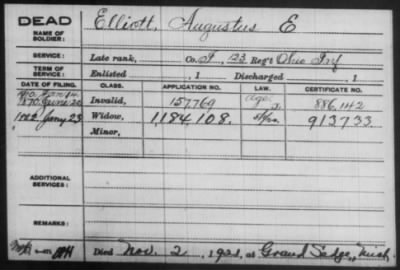 DEAD
NAME OF SOLDIER: Elliott, Augustus E
SERVICE: Late rank, Co. F, 123 Reg't Ohio Inf
TERM OF SERVICE: Enlisted , 1 Discharged , 1
DATE OF FILING. CLASS. APPLICATION NO. LAW. CERTIFICATE NO.
1870 June 20 Invalid, 157,769 Age 886,142
1922 Jany 23 Widow, 1,184,108. 913733
Minor,
ADDITIONAL SERVICES:
REMARKS:
Died Nov. 2, 1921, at Grand Ledge, Mich.